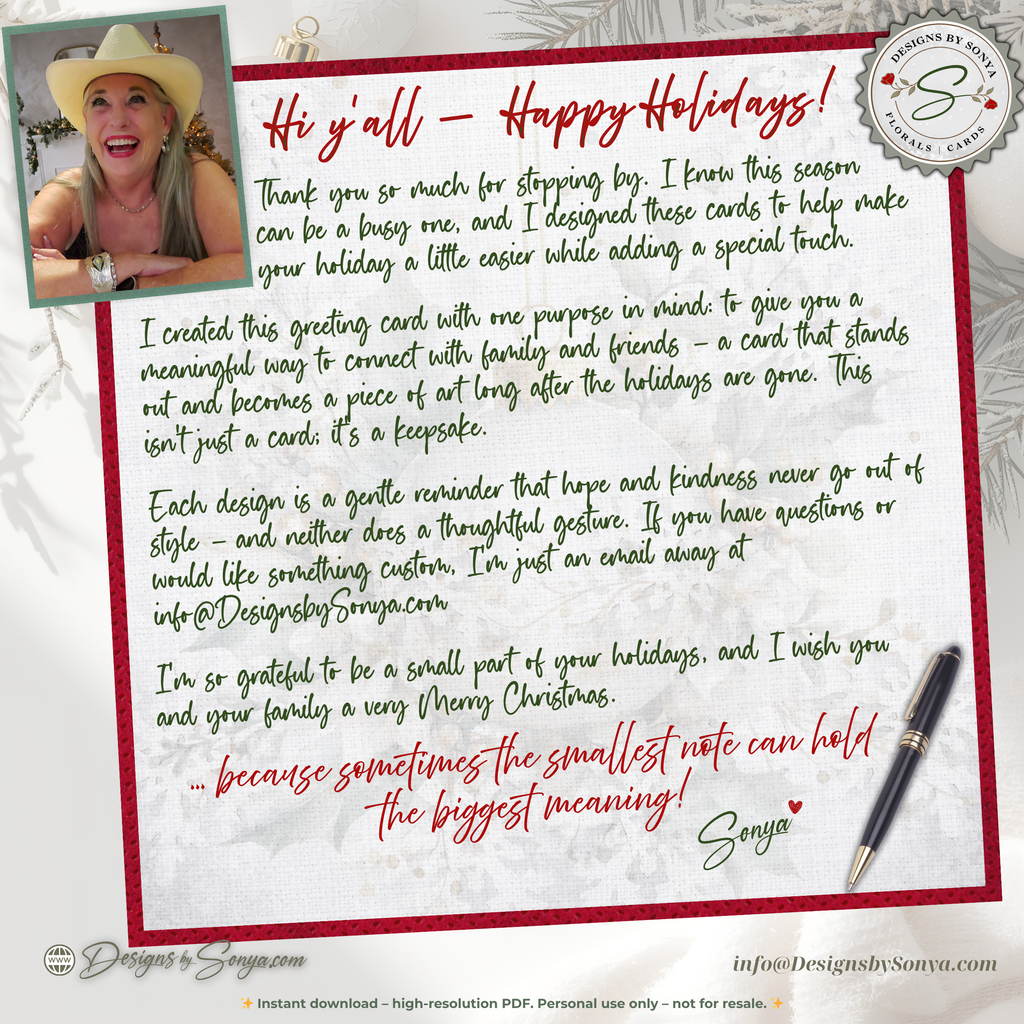 DESIGNS BY SONYA
S
FLORALS | CARDS
Hi y'all – Happy Holidays!
Thank you so much for stopping by. I know this season
can be a busy one, and I designed these cards to help make
your holiday a little easier while adding a special touch.
I created this greeting card with one purpose in mind: to give you a
meaningful way to connect with family and friends – a card that stands
out and becomes a piece of art long after the holidays are gone. This
isn't just a card; it's a keepsake.
Each design is a gentle reminder that hope and kindness never go out of
style – and neither does a thoughtful gesture. If you have questions or
would like something custom, I'm just an email away at
info@DesignsbySonya.com
I'm so grateful to be a small part of your holidays, and I wish you
and your family a very Merry Christmas.
... because sometimes the smallest note can hold
the biggest meaning!
Sonya
www DesignsbySonya.com
info@DesignsbySonya.com
✨ Instant download – high-resolution PDF. Personal use only – not for resale. ✨